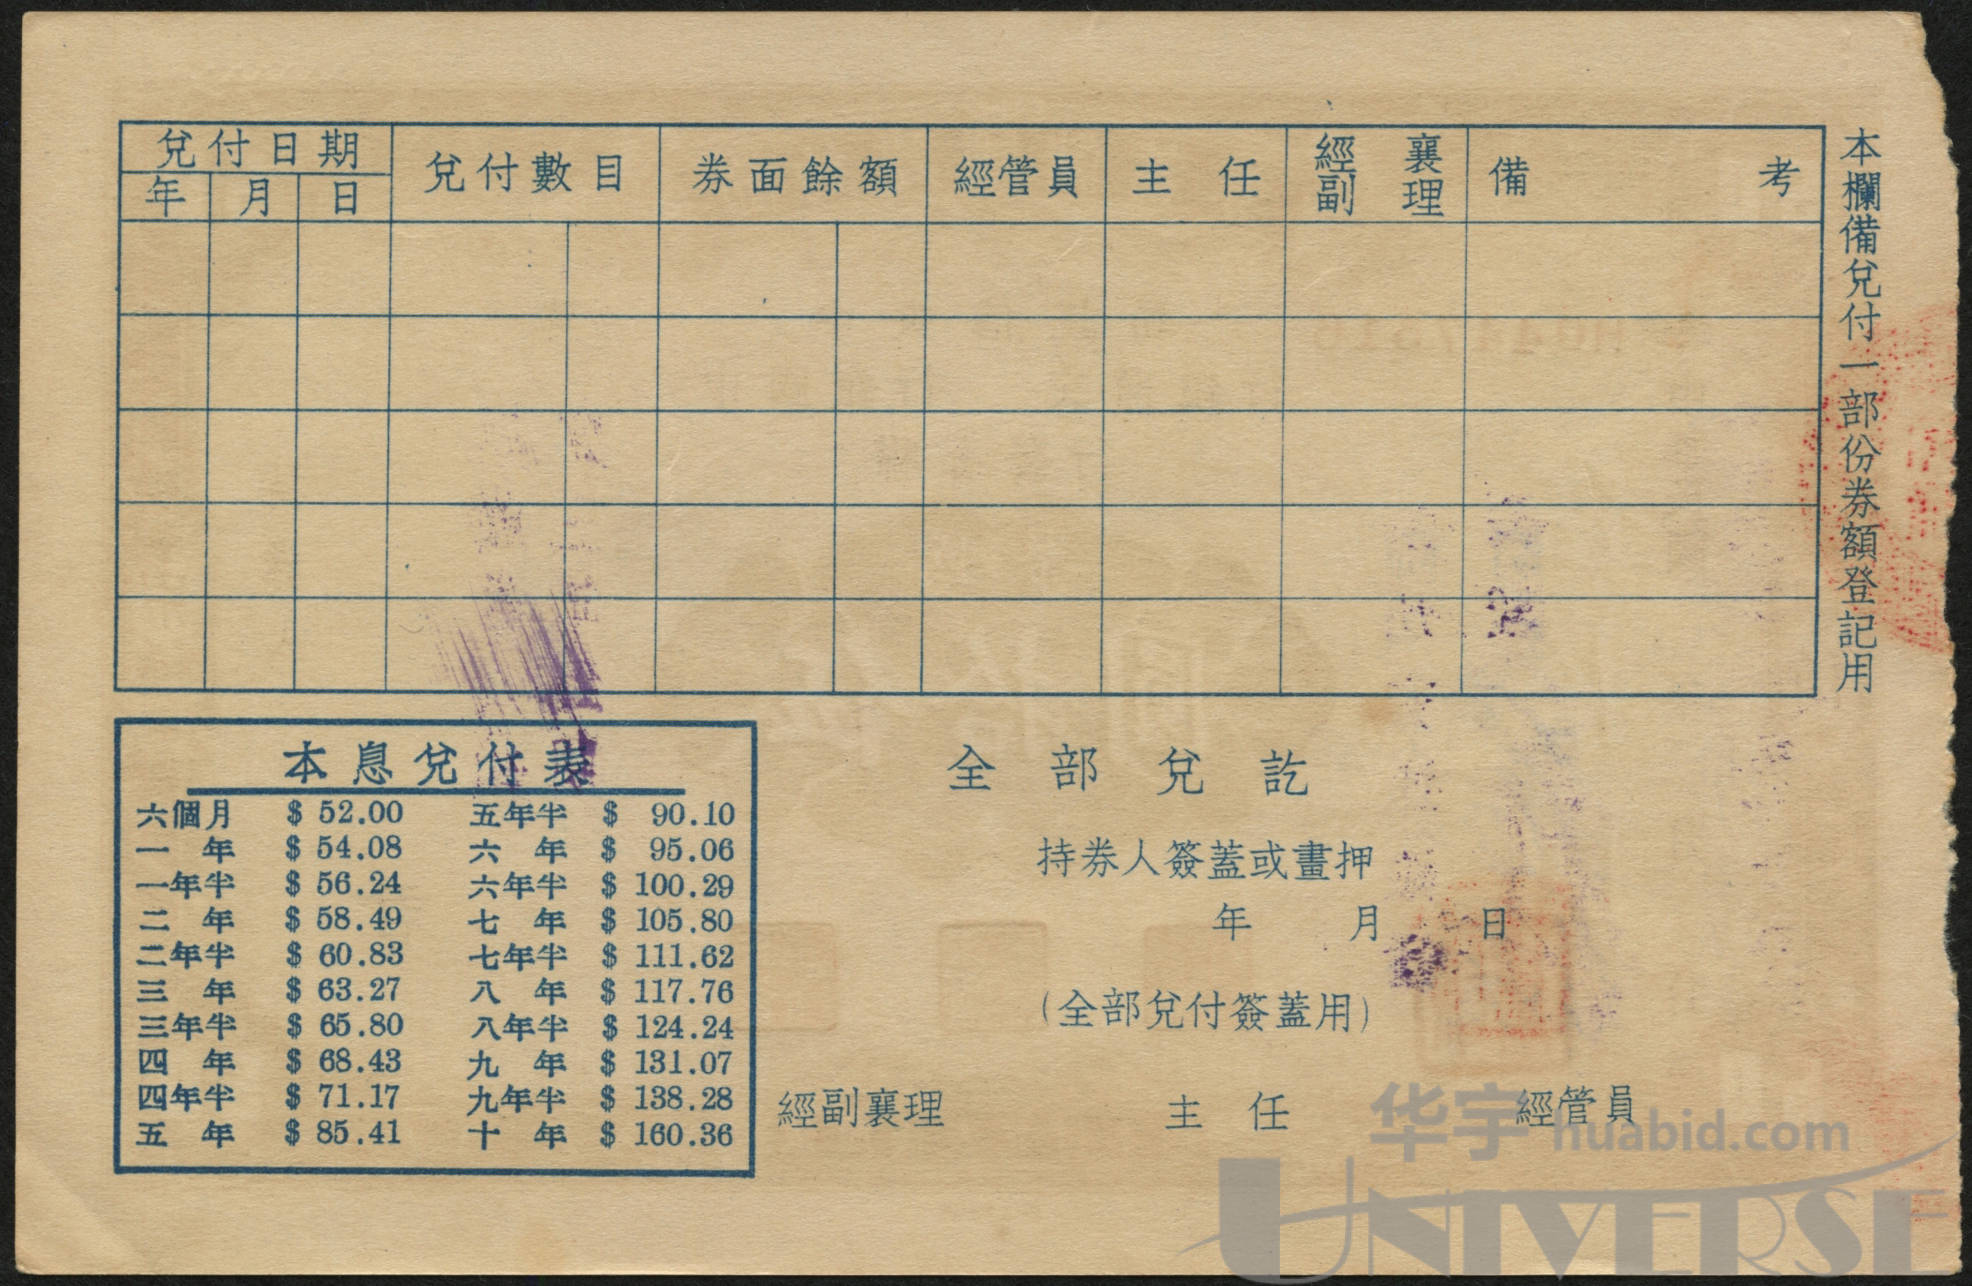 兌付日期
年 月 日
兌付數目
券面餘額
經管員
主任
經副 襄理
備考
本欄備兌付一部份券額登記用
本息兌付表
六個月 $ 52.00 五年半 $ 90.10
一年 $ 54.08 六年 $ 95.06
一年半 $ 56.24 六年半 $ 100.29
二年 $ 58.49 七年 $ 105.80
二年半 $ 60.83 七年半 $ 111.62
三年 $ 63.27 八年 $ 117.76
三年半 $ 65.80 八年半 $ 124.24
四年 $ 68.43 九年 $ 131.07
四年半 $ 71.17 九年半 $ 138.28
五年 $ 85.41 十年 $ 160.36
全部兌訖
持券人簽蓋或畫押
年 月 日
(全部兌付簽蓋用)
經副襄理 主任 經管員
华宇 huabid.com
UNIVERSE